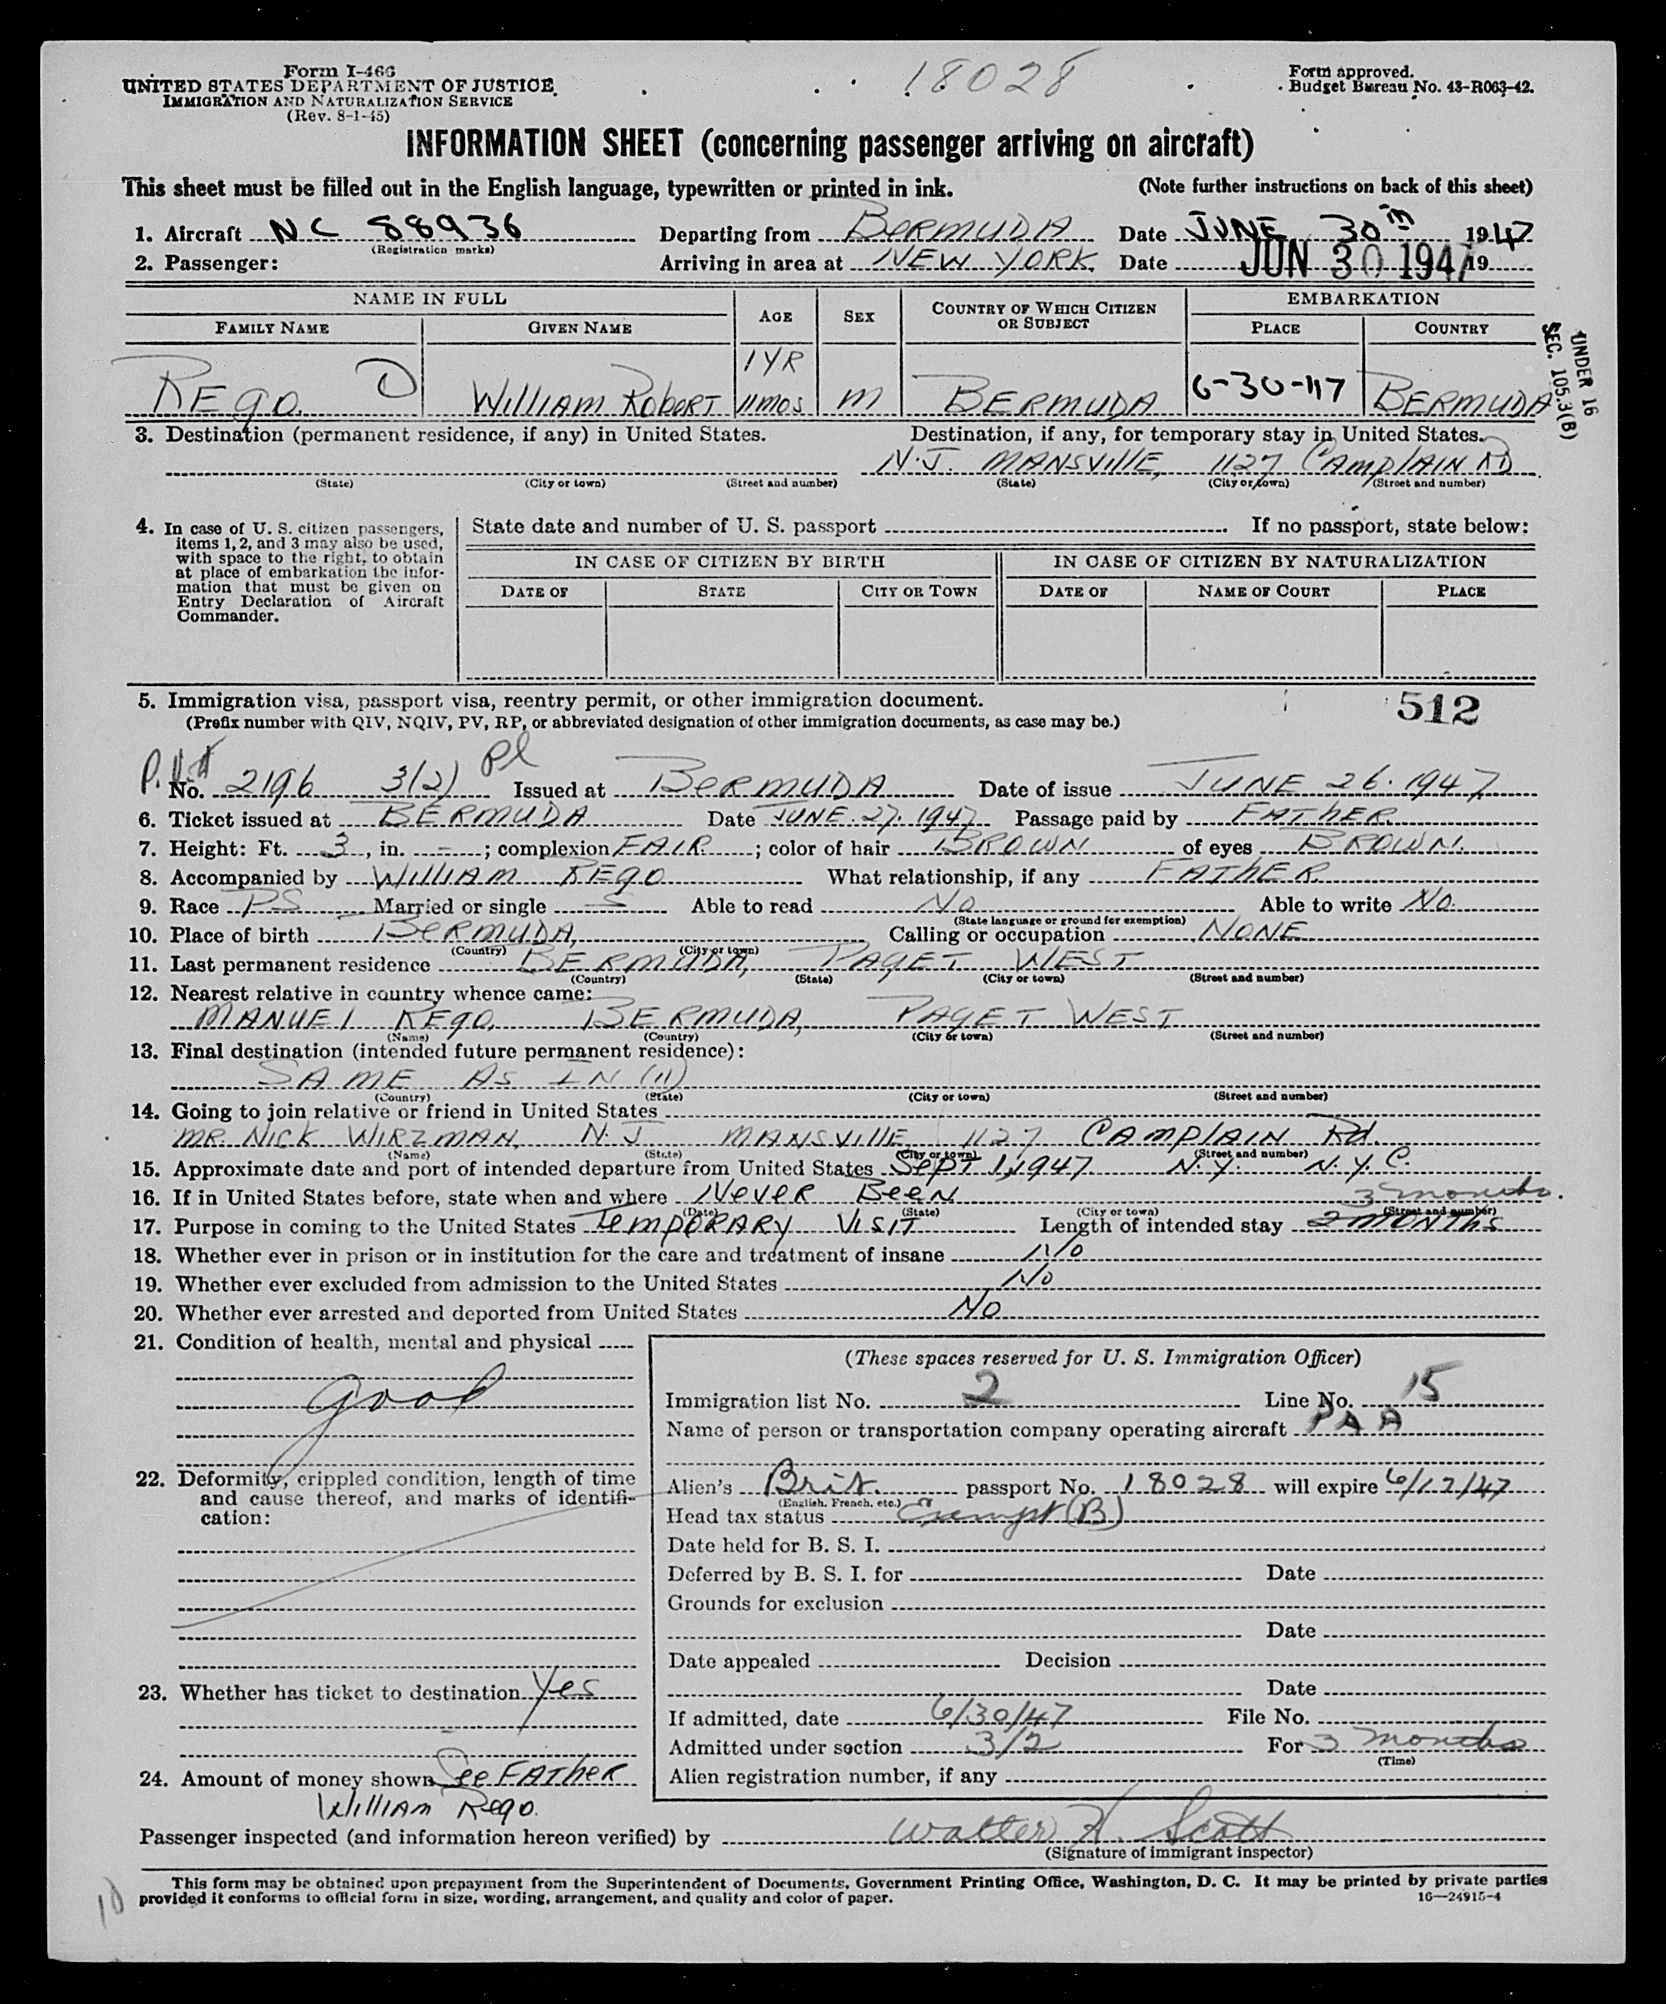 Form I-466
UNITED STATES DEPARTMENT OF JUSTICE
IMMIGRATION AND NATURALIZATION SERVICE
(Rev. 8-1-45)
18028
Form approved.
Budget Bureau No. 43-R063-42.
INFORMATION SHEET (concerning passenger arriving on aircraft)
This sheet must be filled out in the English language, typewritten or printed in ink. (Note further instructions on back of this sheet)
1. Aircraft NC 88936 Departing from BERMUDA Date JUNE 30th 1947
(Registration marks)
2. Passenger: Arriving in area at NEW YORK Date JUN 30 1947 19
NAME IN FULL AGE SEX COUNTRY OF WHICH CITIZEN OR SUBJECT EMBARKATION
FAMILY NAME GIVEN NAME PLACE COUNTRY
REGO D WILLIAM ROBERT 1 YR 11 MOS M BERMUDA 6-30-47 BERMUDA
UNDER 16
SEC. 105.3(B)
3. Destination (permanent residence, if any) in United States. Destination, if any, for temporary stay in United States.
N.J. MANSVILLE, 1127 CAMPLAIN RD
(State) (City or town) (Street and number) (State) (City or town) (Street and number)
4. In case of U. S. citizen passengers, items 1, 2, and 3 may also be used, with space to the right, to obtain at place of embarkation the information that must be given on Entry Declaration of Aircraft Commander.
State date and number of U. S. passport If no passport, state below:
IN CASE OF CITIZEN BY BIRTH IN CASE OF CITIZEN BY NATURALIZATION
DATE OF STATE CITY OR TOWN DATE OF NAME OF COURT PLACE
5. Immigration visa, passport visa, reentry permit, or other immigration document. 512
(Prefix number with QIV, NQIV, PV, RP, or abbreviated designation of other immigration documents, as case may be.)
No. 2196 3(2) Issued at BERMUDA Date of issue JUNE 26. 1947
6. Ticket issued at BERMUDA Date JUNE 27. 1947 Passage paid by FATHER
7. Height: Ft. 3, in. -; complexion FAIR; color of hair BROWN of eyes BROWN.
8. Accompanied by WILLIAM REGO What relationship, if any FATHER
9. Race PS Married or single S Able to read No Able to write No
(State language or ground for exemption)
10. Place of birth BERMUDA, Calling or occupation NONE
(Country) (City or town)
11. Last permanent residence BERMUDA, PAGET WEST
(Country) (State) (City or town) (Street and number)
12. Nearest relative in country whence came:
MANUEL REGO, BERMUDA, PAGET WEST
(Name) (Country) (City or town) (Street and number)
13. Final destination (intended future permanent residence):
SAME AS IN (11)
(Country) (State) (City or town) (Street and number)
14. Going to join relative or friend in United States
MR. NICK WIRZMAN, N.J MANSVILLE 1127 CAMPLAIN Rd.
(Name) (State) (City or town) (Street and number)
15. Approximate date and port of intended departure from United States SEPT 1, 1947 N.Y. N.Y.C.
16. If in United States before, state when and where NEVER BEEN
(Date) (State) (City or town) (Street and number)
3 months.
17. Purpose in coming to the United States TEMPORARY VISIT Length of intended stay 2 MONTHS
18. Whether ever in prison or in institution for the care and treatment of insane No
19. Whether ever excluded from admission to the United States No
20. Whether ever arrested and deported from United States No
21. Condition of health, mental and physical
good
22. Deformity, crippled condition, length of time and cause thereof, and marks of identification:
23. Whether has ticket to destination Yes
24. Amount of money shown See FATHER
WILLIAM REGO.
(These spaces reserved for U. S. Immigration Officer)
Immigration list No. 2 Line No. 15
Name of person or transportation company operating aircraft PAA
Alien's Brit. passport No. 18028 will expire 6/17/47
(English, French, etc.)
Head tax status Exempt (B)
Date held for B. S. I.
Deferred by B. S. I. for Date
Grounds for exclusion
Date
Date appealed Decision
Date
If admitted, date 6/30/47 File No.
Admitted under section 3/2 For 3 months
(Time)
Alien registration number, if any
Passenger inspected (and information hereon verified) by Walter H. Scott
(Signature of immigrant inspector)
This form may be obtained upon prepayment from the Superintendent of Documents, Government Printing Office, Washington, D. C. It may be printed by private parties
provided it conforms to official form in size, wording, arrangement, and quality and color of paper. 16—24915-4
10